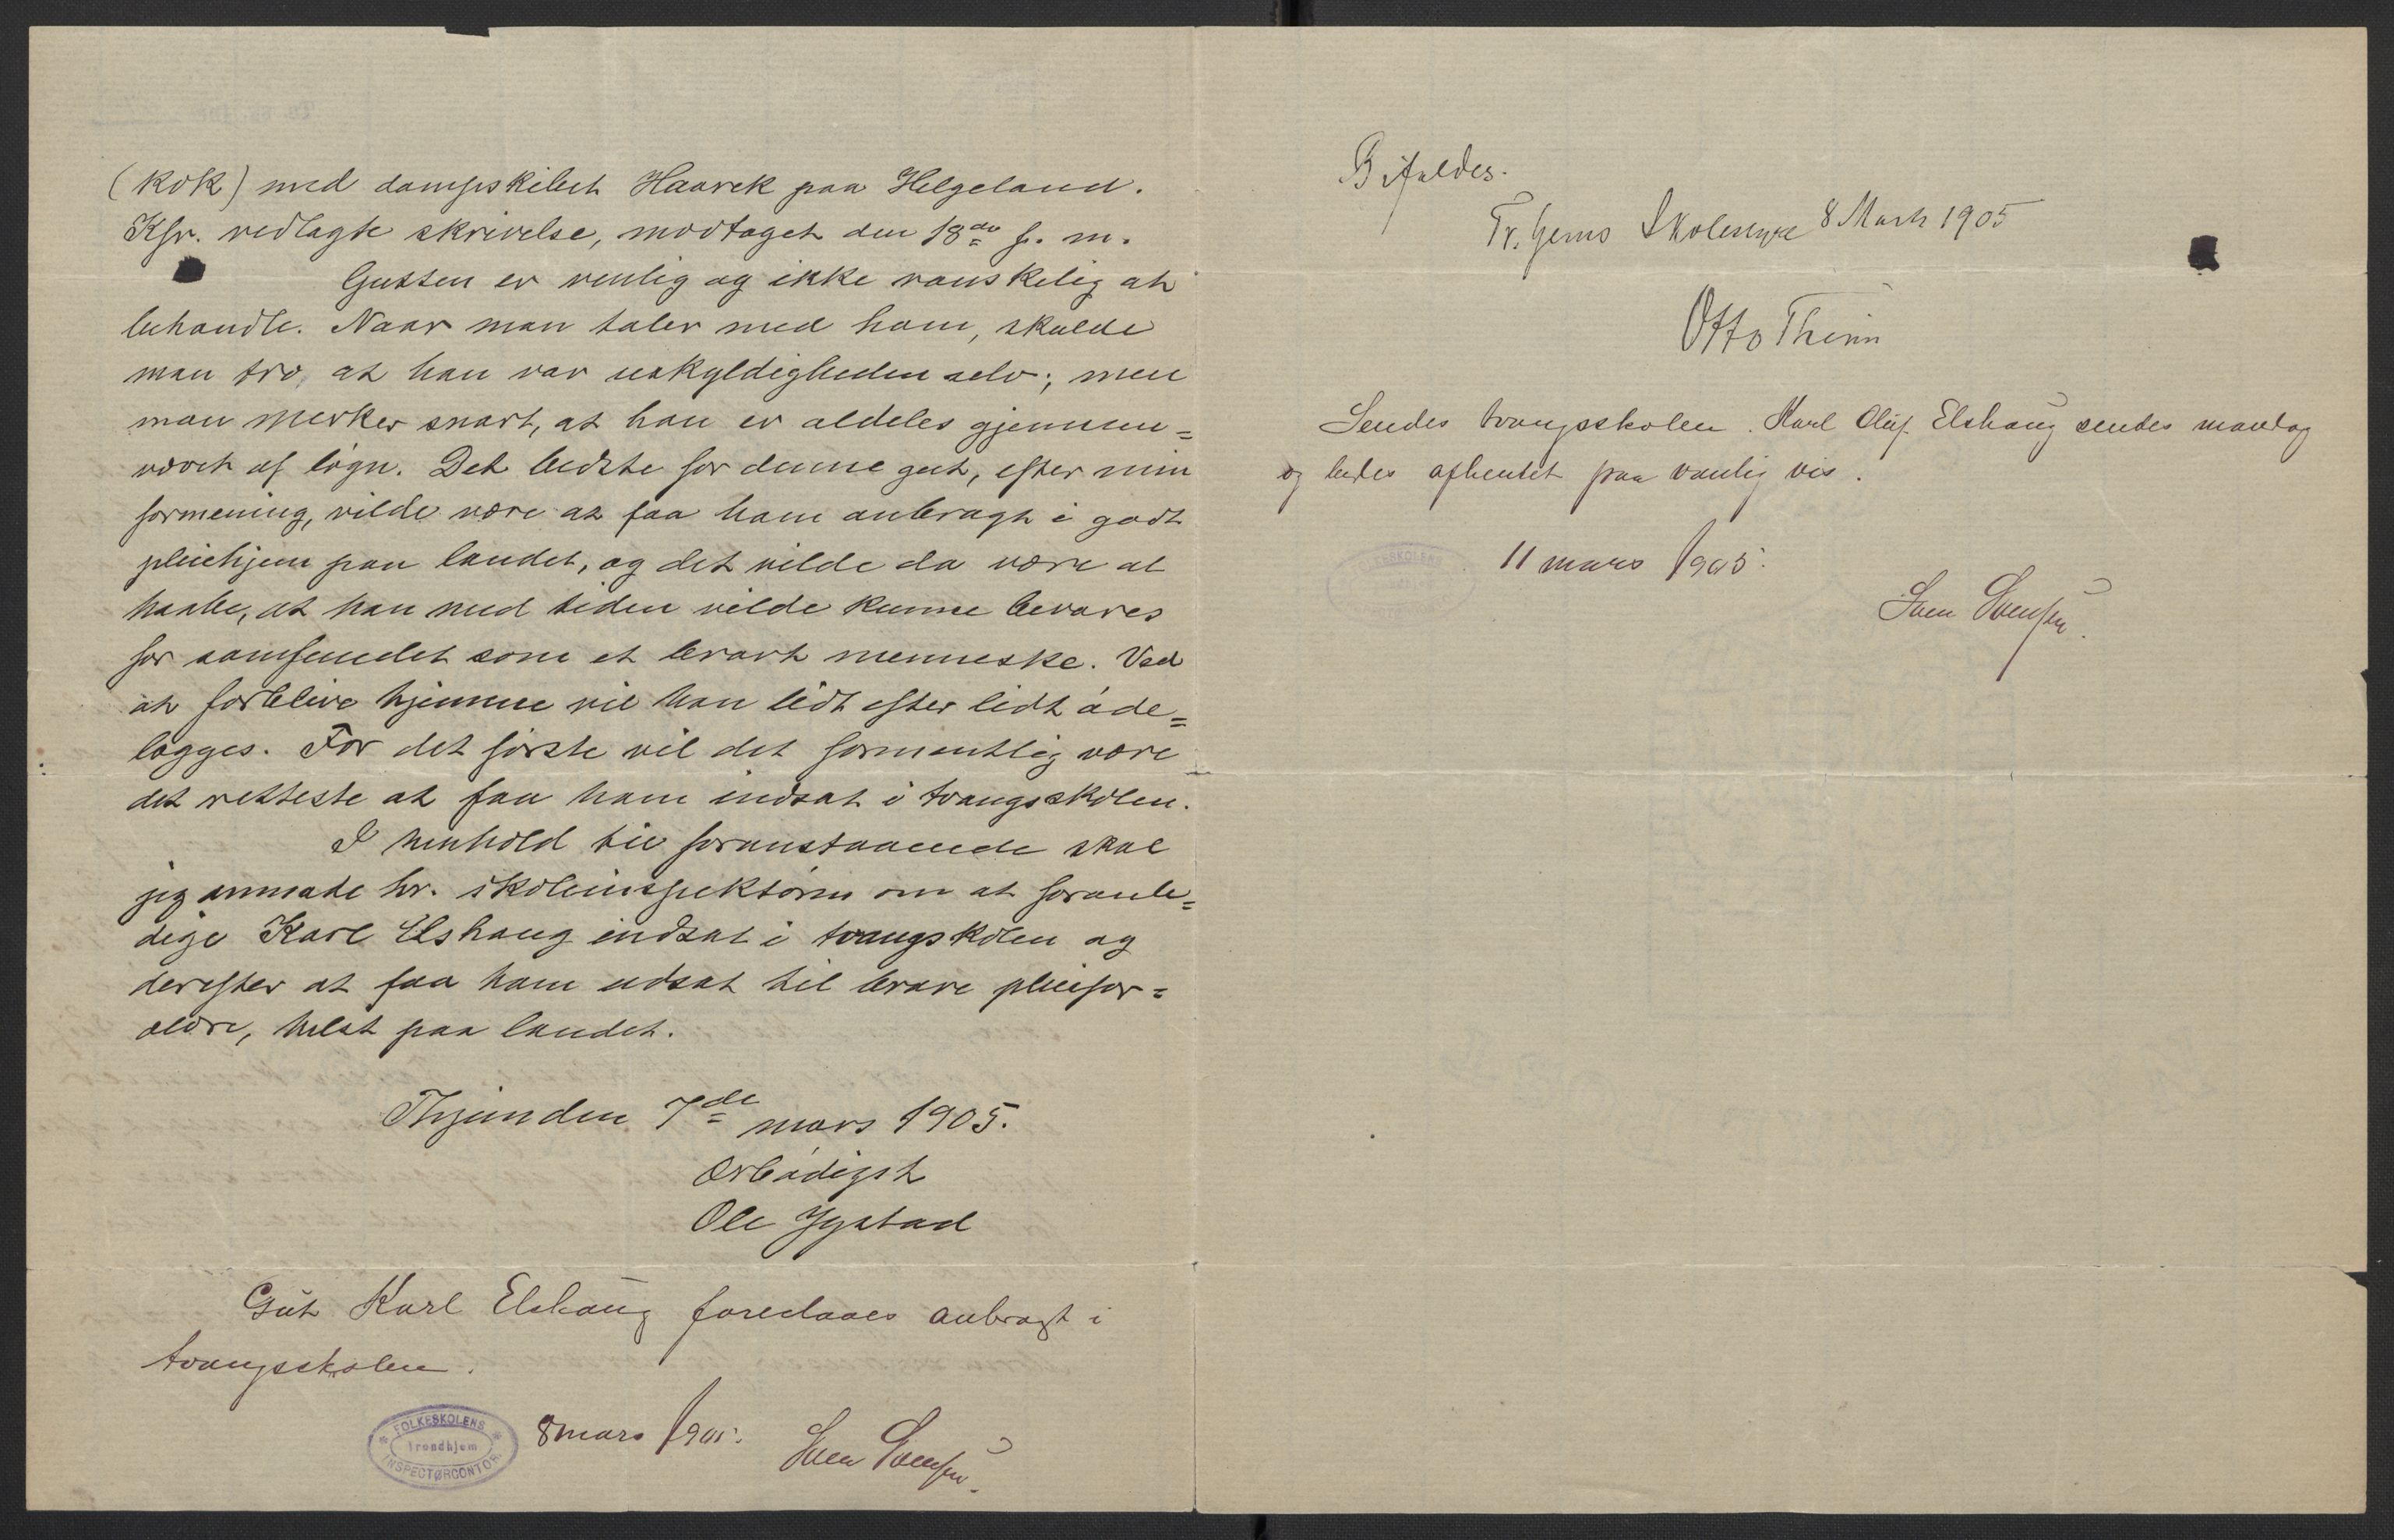 (kok) med dampskibet Haarek paa Helgeland.
Kfr. vedlagte skrivelse, modtaget den 13de f. m.
Gutten er venlig og ikke vanskelig at
behandle. Naar man taler med ham, skulde
man tro, at han var uskyldigheden selv; men
man merker snart, at han er aldeles gjennem=
vævet af løgn. Det bedste for denne gut, efter min
formening, vilde være at faa ham anbragt i godt
pleiehjem paa landet, og det vilde da være at
haabe, at han med tiden vilde kunne bevares
for samfundet som et bravt menneske. Ved
at forblive hjemme vil han lidt efter lidt øde=
lægges. For det første vil det formentlig være
det retteste at faa ham indsat i tvangsskolen.
I henhold til foranstaaende skal
jeg anmode hr. skoleinspektøren om at foranle=
dige Karl Elshaug indsat i tvangskolen og
derefter at faa ham udsat til brave pleiefor=
ældre, helst paa landet.
Thjem den 7de mars 1905.
Ærbødigst
Ole Ystad
Gut Karl Elshaug foreslaaes anbragt i
tvangsskolen.
FOLKESKOLENS
Trondhjem
INSPECTØRCONTOR
8 mars 1905.
Sven Svensen
Bifaldes.
Tr.hjems Skolestyre 8 Marts 1905
Otto Thenn
Sendes tvangsskolen. Karl Oluf Elshaug sendes mandag
og bedes afhentet paa vanlig vis.
11 mars 1905.
Sven Svensen